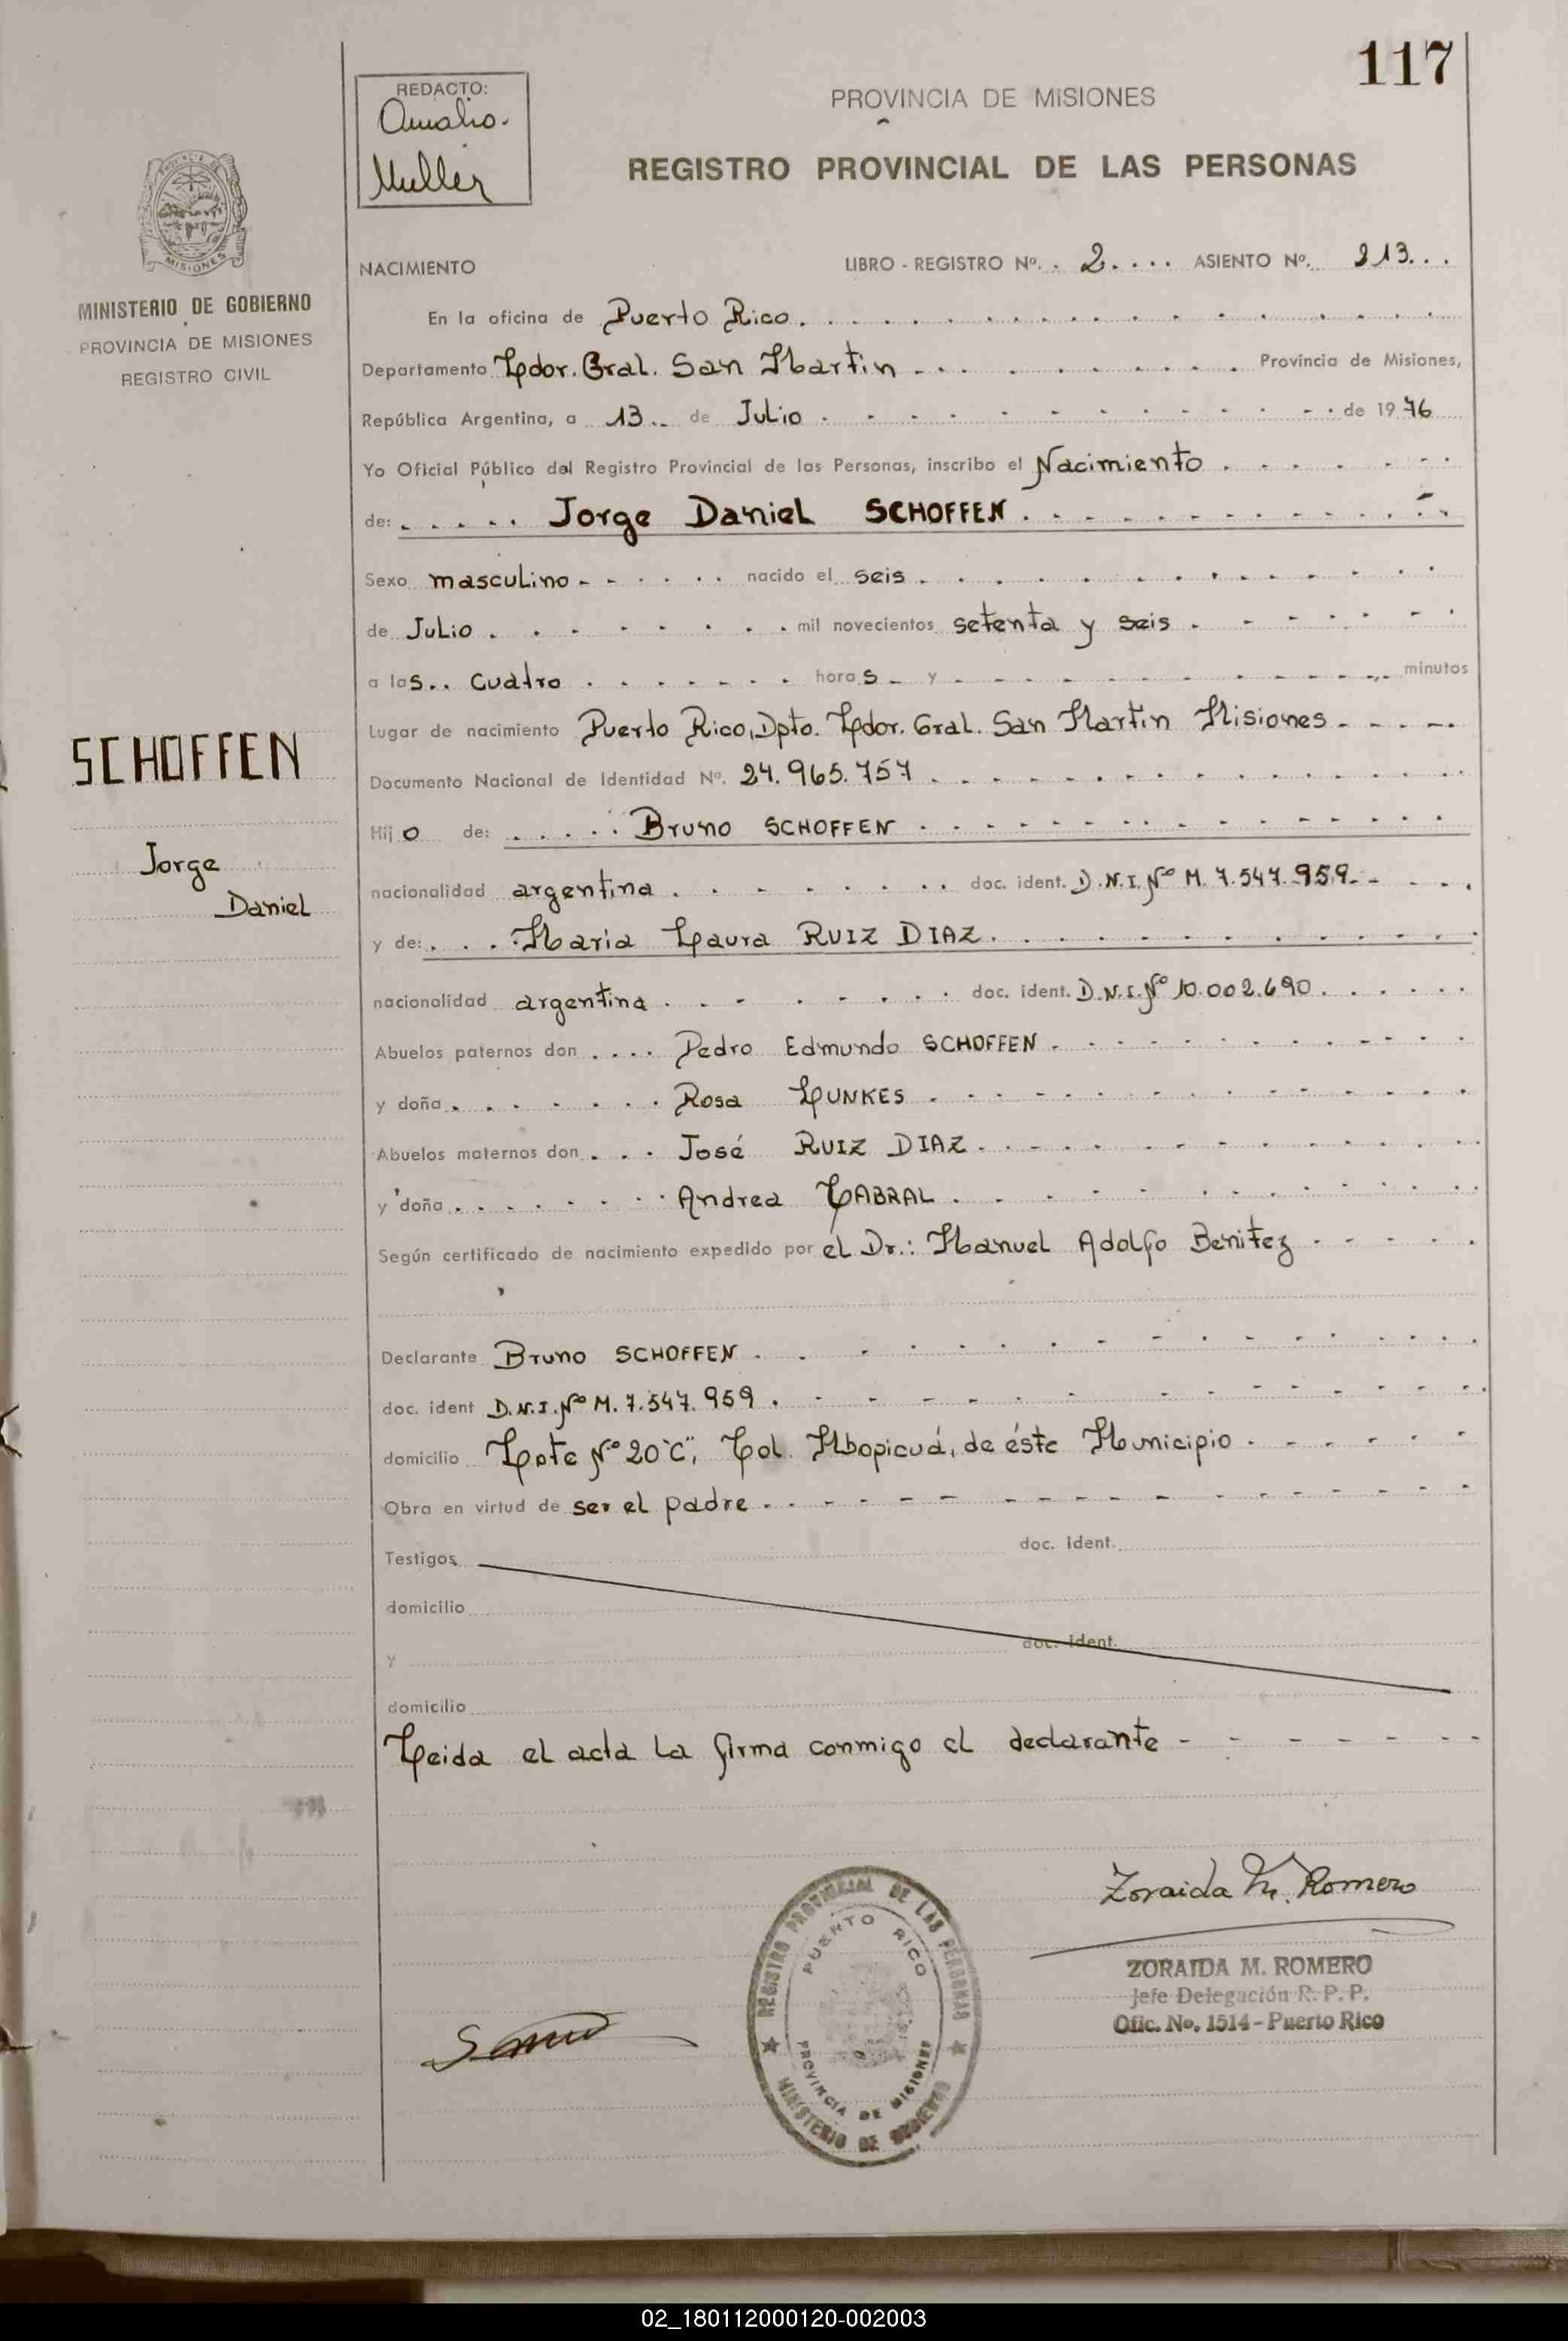 117
REDACTO:
Amalio.
Muller
PROVINCIA DE MISIONES
REGISTRO PROVINCIAL DE LAS PERSONAS
MISIONES
MINISTERIO DE GOBIERNO
PROVINCIA DE MISIONES
REGISTRO CIVIL
NACIMIENTO LIBRO - REGISTRO Nº. 2 ASIENTO Nº. 213
En la oficina de Puerto Rico.
Departamento Ldor. Gral. San Martin Provincia de Misiones,
República Argentina, a 13 de Julio de 1976
Yo Oficial Público del Registro Provincial de las Personas, inscribo el Nacimiento
de: Jorge Daniel SCHOFFEN
Sexo masculino nacido el seis
de Julio mil novecientos setenta y seis
a las cuatro horas y minutos
Lugar de nacimiento Puerto Rico, Dpto. Ldor. Gral. San Martin Misiones
Documento Nacional de Identidad Nº. 24.965.757
Hijo de: Bruno SCHOFFEN
nacionalidad argentina doc. ident. D.N.I. Nº M. 7.547.959
y de: Maria Laura RUIZ DIAZ
nacionalidad argentina doc. ident. D.N.I. Nº 10.002.690
Abuelos paternos don Pedro Edmundo SCHOFFEN
y doña Rosa LUNKES
Abuelos maternos don José RUIZ DIAZ
y doña Andrea CABRAL
Según certificado de nacimiento expedido por el Dr.: Manuel Adolfo Benitez
SCHOFFEN
Jorge
Daniel
Declarante Bruno SCHOFFEN
doc. ident D.N.I. Nº M. 7.547.959
domicilio Lote Nº 20 "C", Col. Mbopicuá, de éste Municipio
Obra en virtud de ser el padre
Testigos doc. ident.
domicilio
y doc. ident.
domicilio
Leida el acta la firma conmigo el declarante
Zoraida M. Romero
ZORAIDA M. ROMERO
Jefe Delegación R. P. P.
Ofic. No. 1514 - Puerto Rico
REGISTRO PROVINCIAL DE LAS PERSONAS
PUERTO RICO
PROVINCIA DE MISIONES
MINISTERIO DE GOBIERNO
02_180112000120-002003